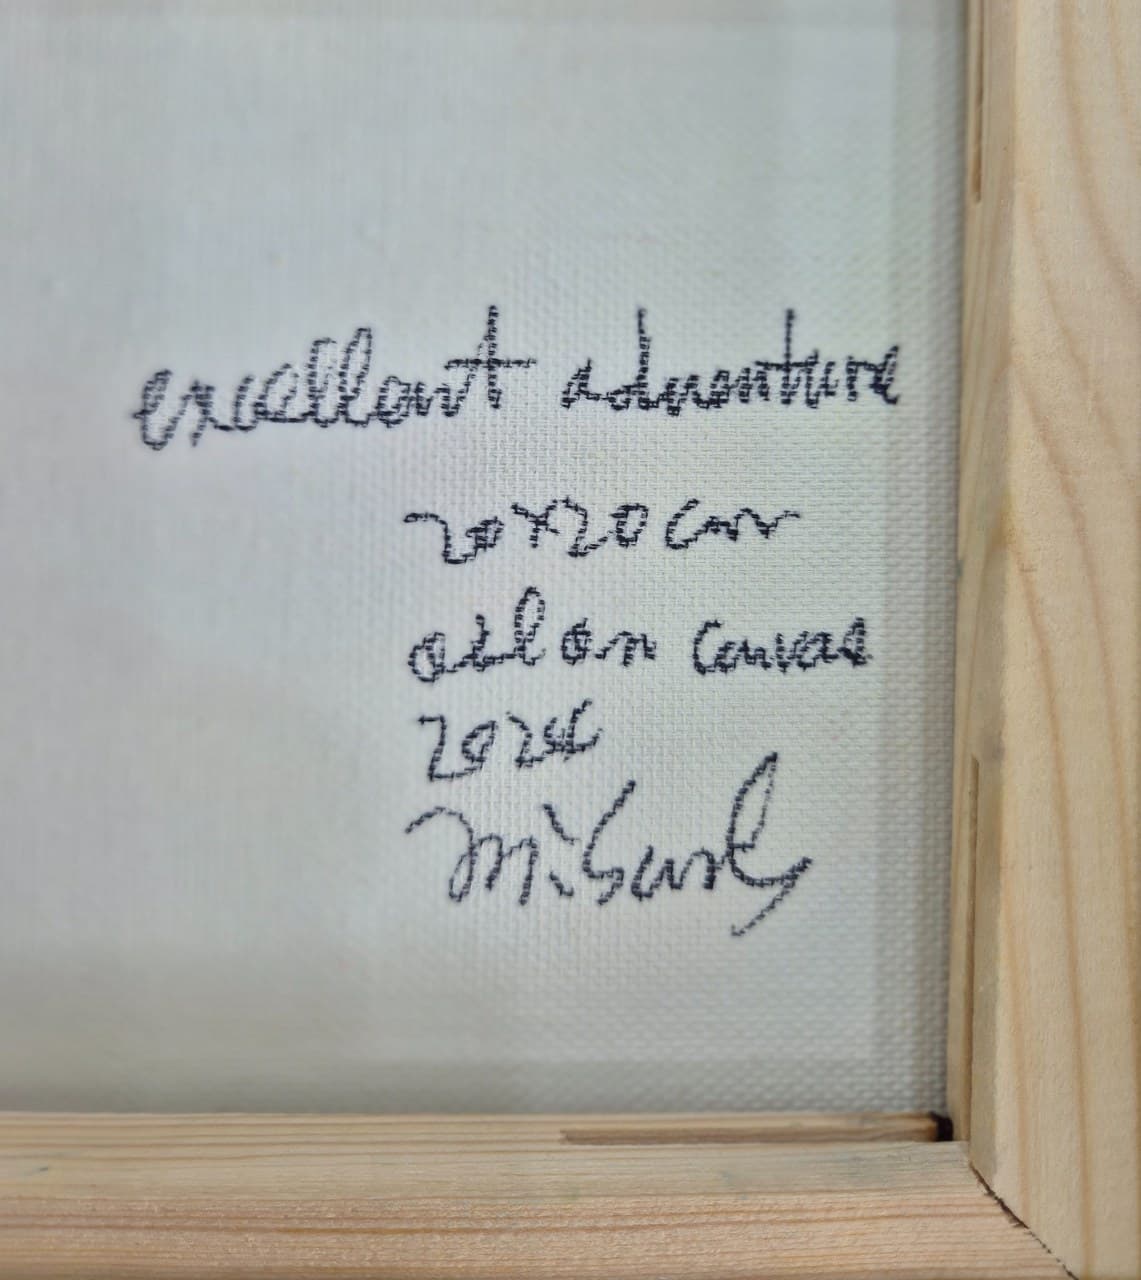 excellent adventure
20x20 cm
oil on canvas
2024